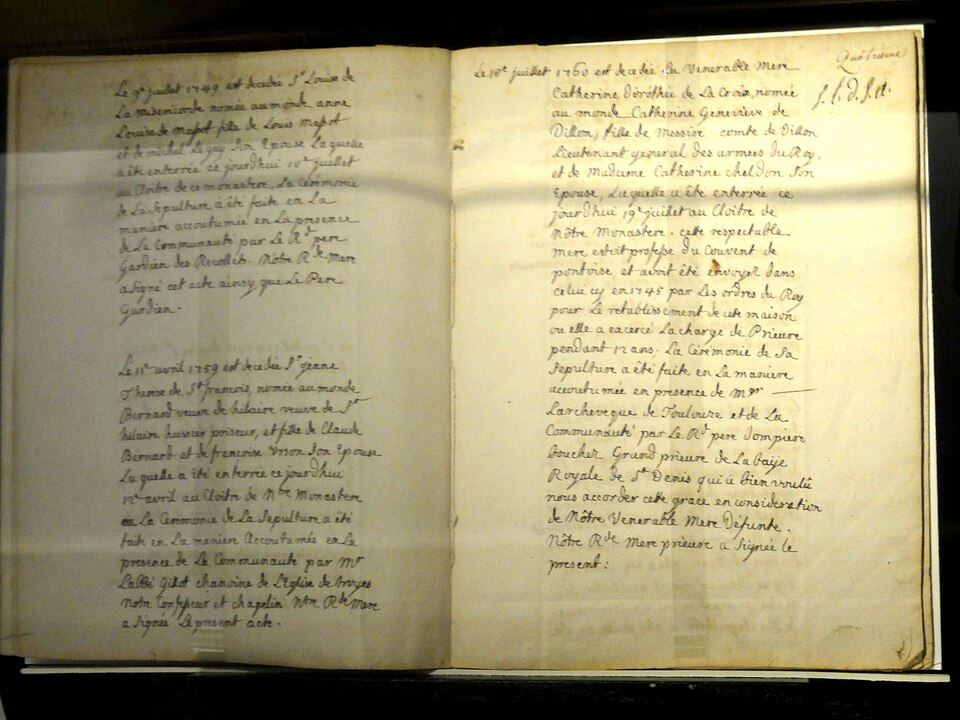 Le 9e juillet 1749 est decedée Sr Louise de
La misericorde nomée au monde anne
Louise de mapot fille de Louis mapot
et de michel Le gay son Epouse La quelle
a été enterrée ce jourdhui 10e juillet
au Cloitre de ce monastere, La Ceremonie
de La Sepulture à été faite en La
maniere accoutumée en La presence
de La Communauté par Le Rd pere
Gardien des Recollets. Nôtre Rde Mere
a signé cet acte ainsy que Le Pere
Gardien.
Le 11e avril 1759 est decedée Sr jeanne
Therese de St francois, nomée au monde
Bernard veuve de hilaire veuve de Sr
hilaire hussier priseur, et fille de Claude
Bernard et de francoise son Epouse
La quelle a Eté enterrée ce jourdhui
12e avril au Cloitre de Nтre Monastere
en La Ceremonie de La Sepulture a été
faite en La maniere Accoutumée en La
presence de La Communauté par Mr
Labbé Gillot chanoine de L'Eglise de troyes
Notre Confesseur et chapelin Ntre Rde Mere
a signée Le present acte.
Quatrieme
Le 18e juillet 1760 est decedée La Venerable Mere
Catherine Dorothée de La Croix nomée
au monde Catherine Genevieve de
Dillon, fille de Messire comte de Dillon
Lieutenant general des armées du Roy,
et de Madame Catherine cheldon Son
Epouse, La quelle a été enterrée ce
jourdhui 19e juillet au Cloitre de
Nôtre Monastere. cette respectable
Mere estoit professe du Couvent de
pontoise et avoit été envoyée dans
celui cy en 1745 par Les ordres du Roy
pour Le retablissement de cete maison
ou elle a exercé La charge de Prieure
pendant 12 ans. La Cérémonie de Sa
Sepulture a été faite en La maniere
accoutumée en presence de Mgr
Larcheveque de Toulouze et de La
Communauté par Le Rd pere Dom pierre
boucher Grand prieure de Labaÿe
Royale de St Denis qui à bien voulû
nous accorder cette grace en consideration
de Nôtre Venerable Mere Défunte.
Nôtre Rde Mere prieure a Signée le
present :